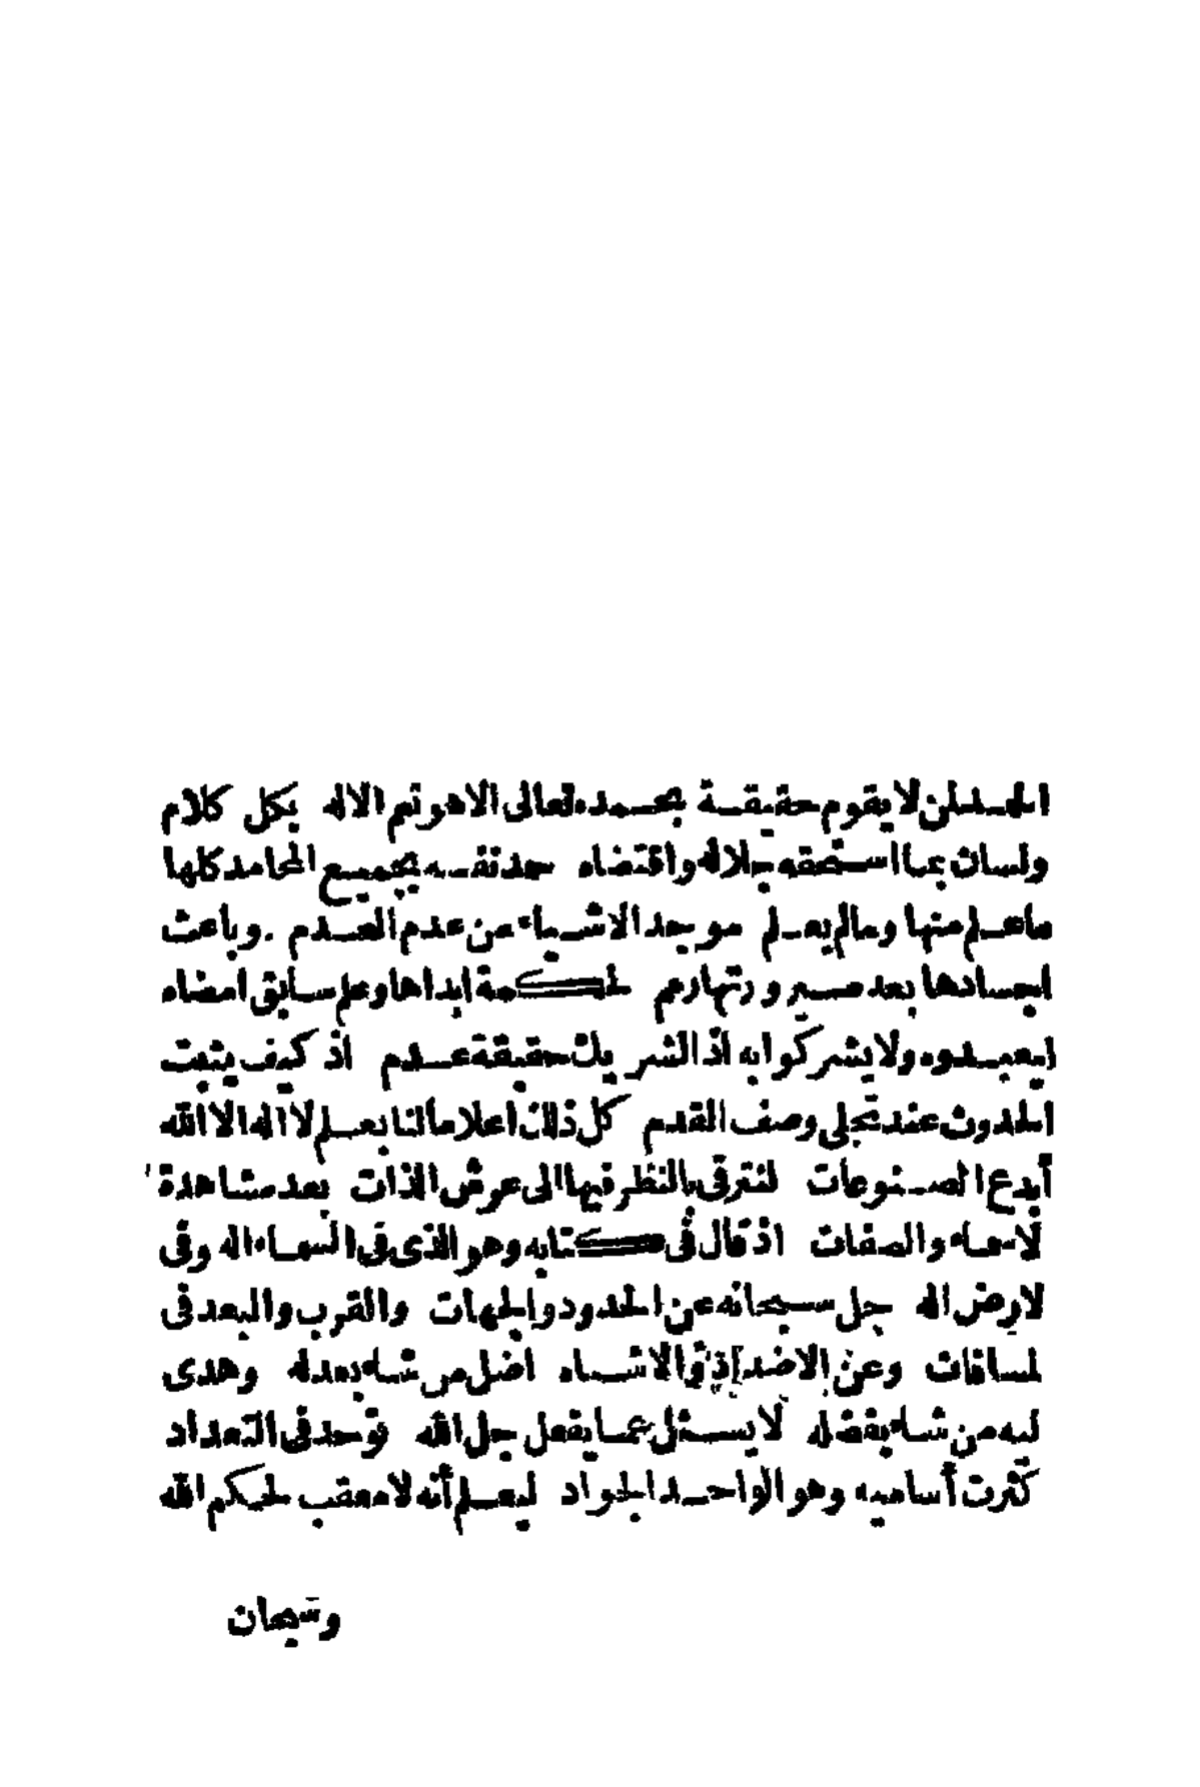 الحمد لمن لا يقوم حقيقة بحمده تعالى الا هو نعم الاله بكل كلام
ولسان بما استحقه جلاله واقتضاه حمد نفسه بجميع المحامد كلها
ما علم منها وما لم يعلم موجد الاشياء من عدم العدم . وباعث
اجسادها بعد صيرورتها رمم لحكمة ابداها وعلم سابق امضاه
ليعبدوه ولا يشركوا به اذ الشريك حقيقة عدم اذ كيف يثبت
الحدوث عند تجلى وصف القدم كل ذلك اعلاما لنا بعلم لا اله الا الله
أبدع المصنوعات لنترقى بالنظر فيها الى عرش الذات بعد مشاهدة
لاسماء والصفات اذ قال فى كتابه وهو الذى فى السماء اله وفى
لارض اله جل سبحانه عن الحدود والجهات والقرب والبعد فى
لمسافات وعن الاضداد والاشباه اضل من شاء بعدله وهدى
ليه من شاء بفضله لا يسئل عما يفعل جل الله توحد فى التعداد
كثرت أساميه وهو الواحد الجواد ليعلم أنه لا معقب لحكم الله
وسبحان